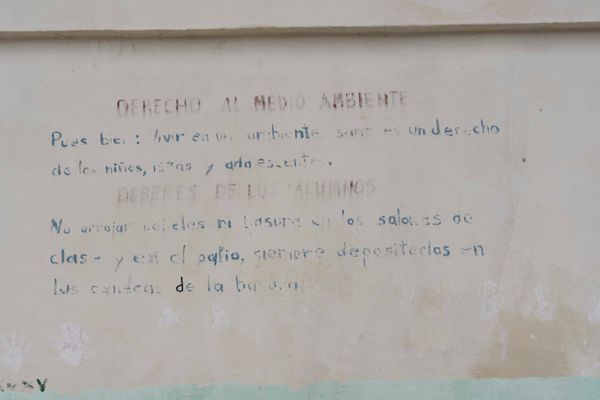 DERECHO AL MEDIO AMBIENTE
Pues bien: Vivir en un ambiente sano es un derecho
de los niños, niñas y adolescentes.
DEBERES DE LOS ALUMNOS
No arrojar papeles ni basura en los salones de
clase y en el patio, siempre depositarlos en
los de la basura